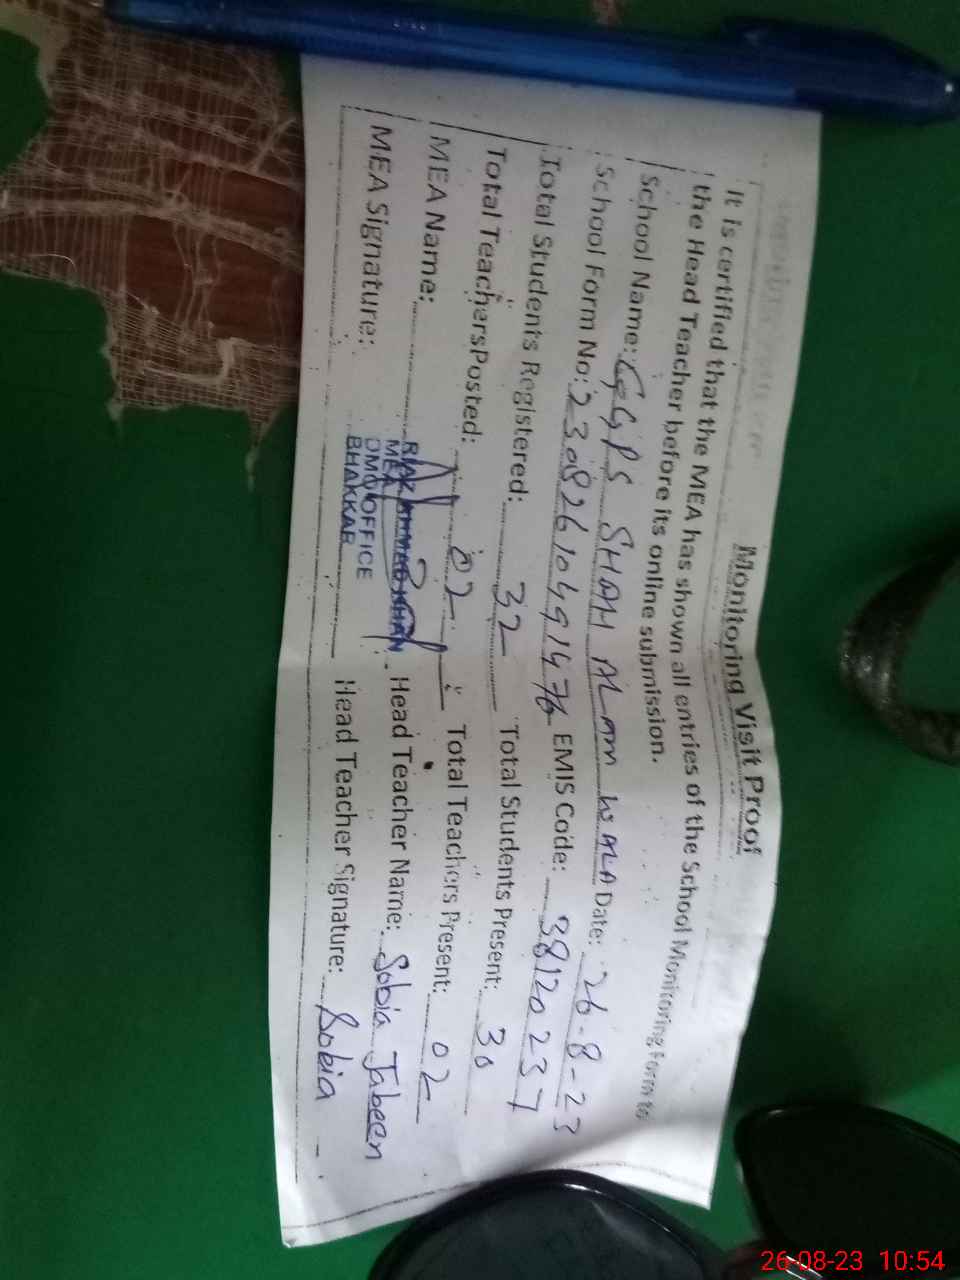 Monitoring Visit Proof
It is certified that the MEA has shown all entries of the School Monitoring form to
the Head Teacher before its online submission.
School Name: GGPS SHAH ALAM WALA Date: 26-8-23
School Form No: 23082610491476 EMIS Code: 38120237
Total Students Registered: 32 Total Students Present: 30
Total Teachers Posted: 02 Total Teachers Present: 02
MEA Name: RIAZ AHMAD KHAN Head Teacher Name: Sobia Jabeen
MEA
DMO OFFICE
BHAKKAR
MEA Signature: Head Teacher Signature: Sobia
26-08-23 10:54